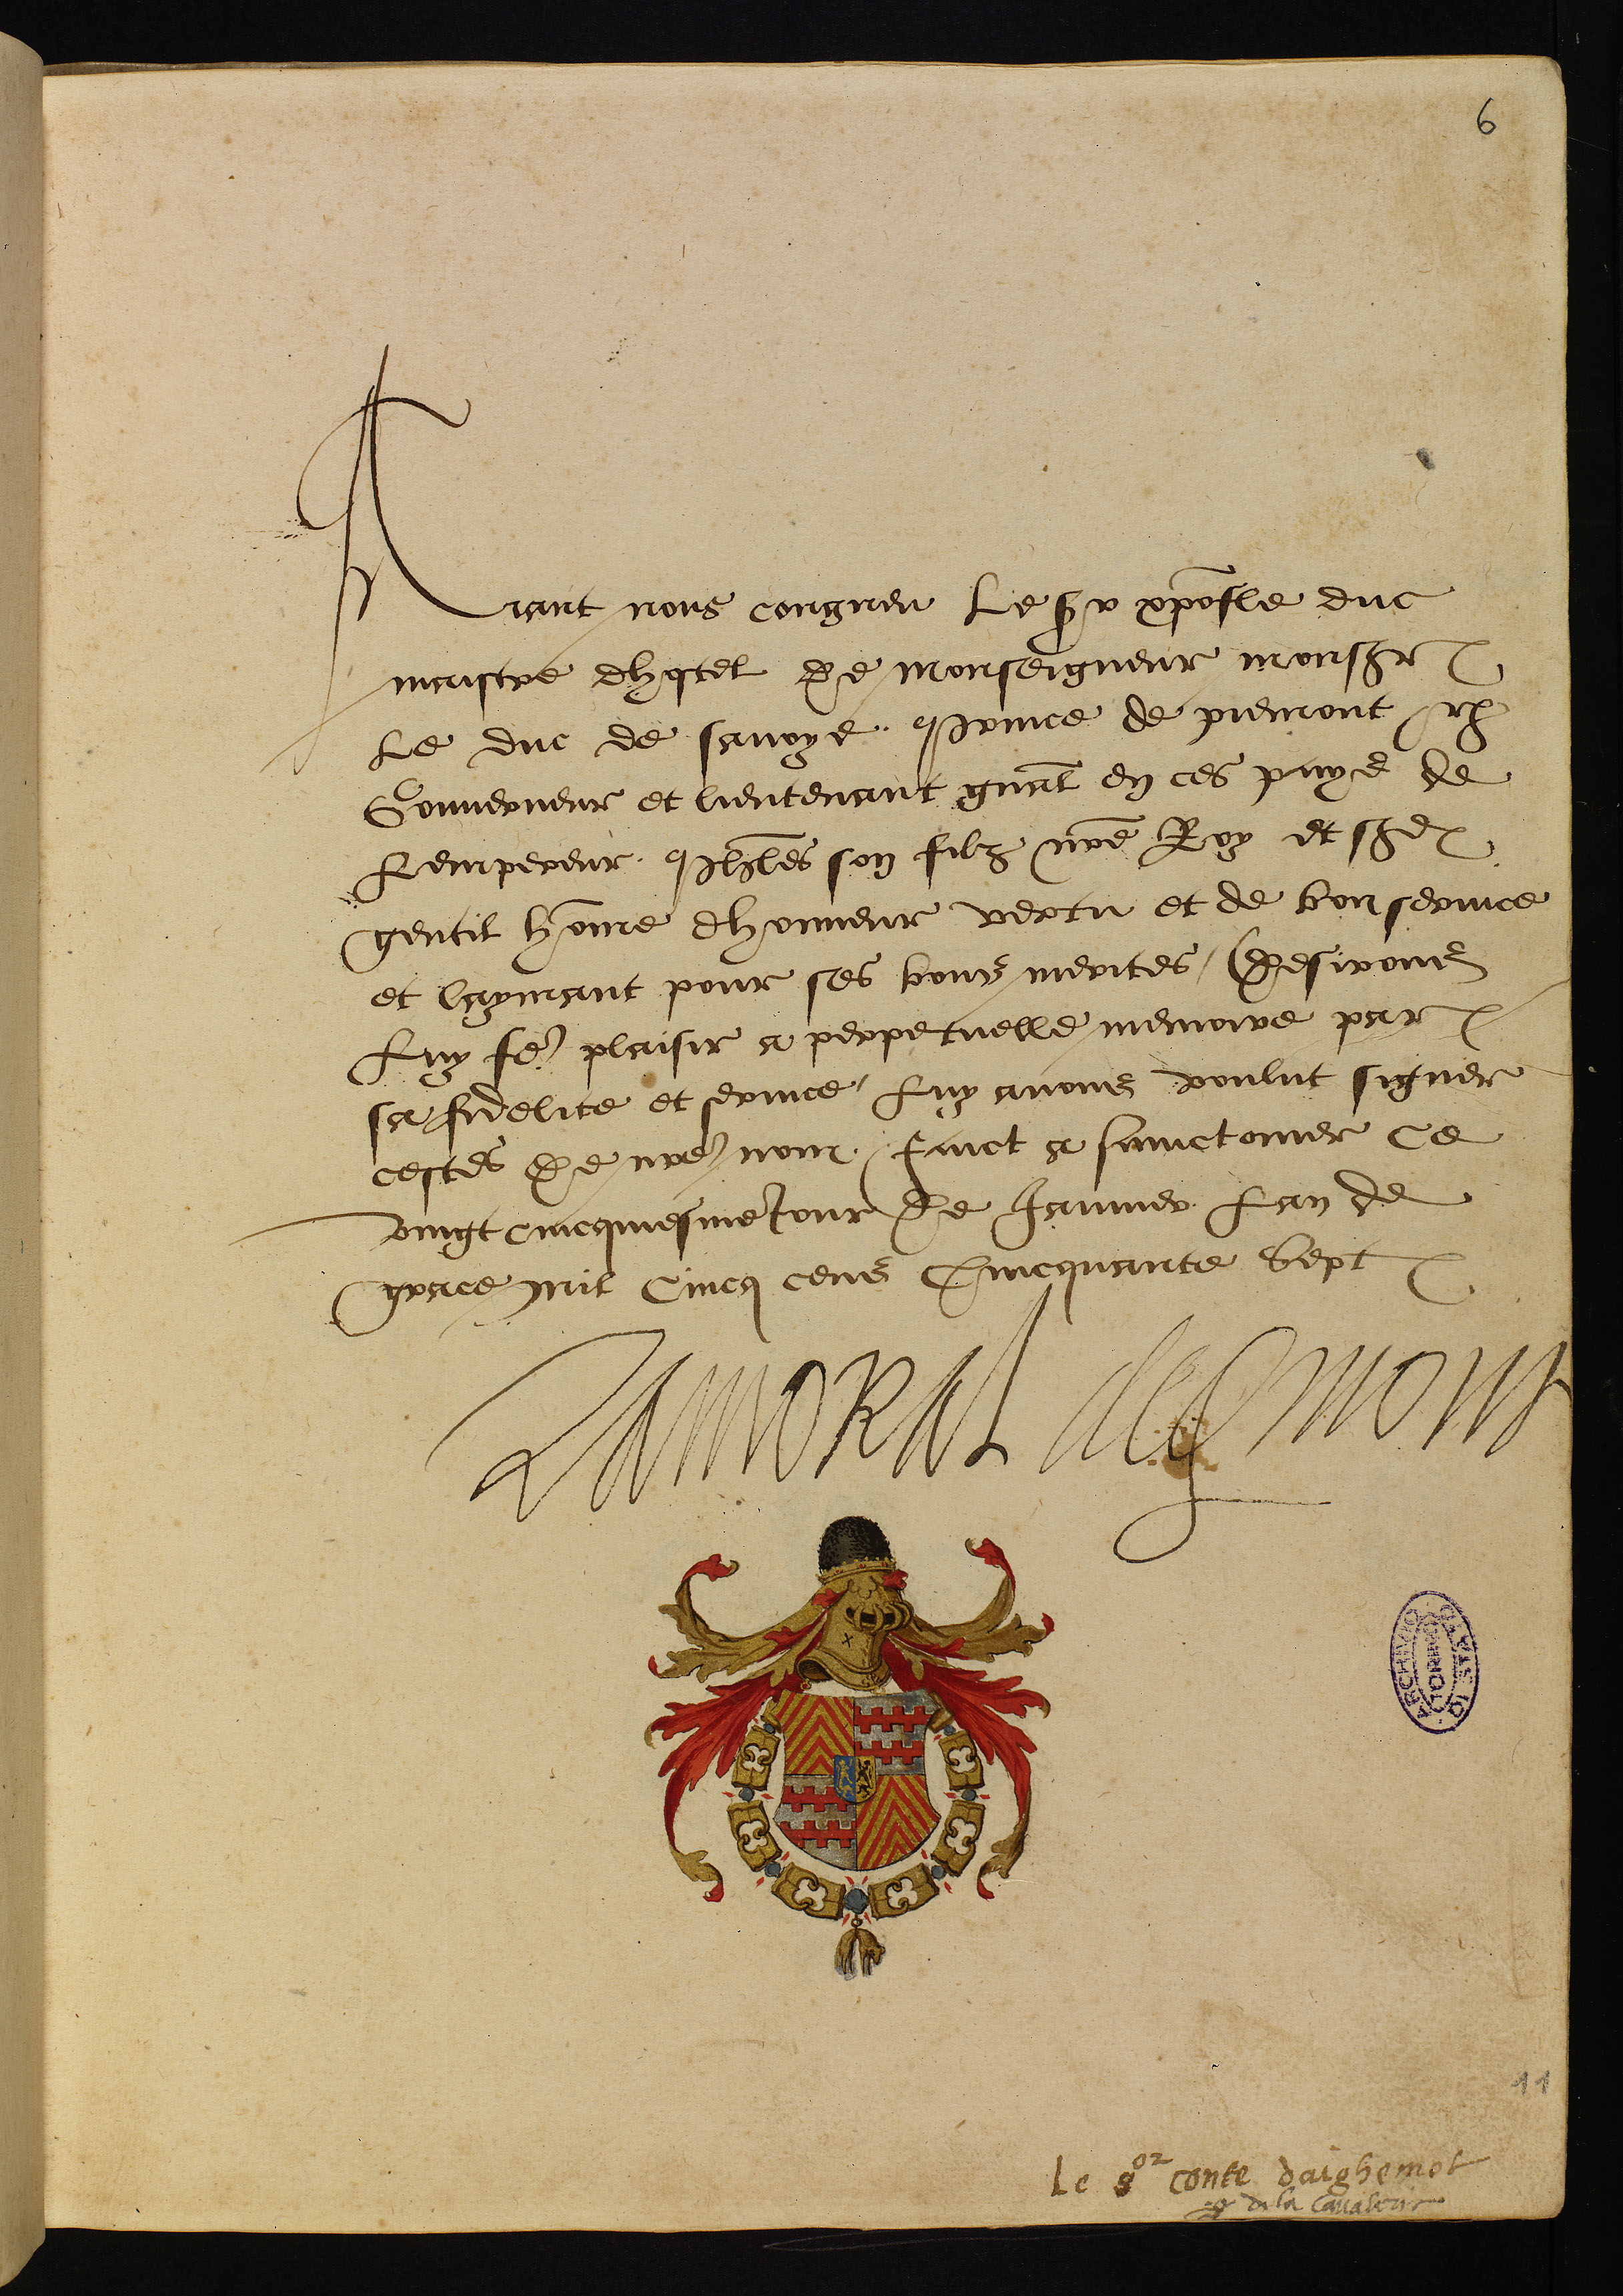 6
Aiant nous congneu Le Sr xpofle duc
maistre dhostel De Monseigneur monsgr
Le duc de savoye. Prince de piemont
Gouverneur et lieutenant gnal en ces pays de
Lempereur. Philes son filz nre Roy et sgr
gentil home dhonneur vertu et de bon service
et laymant pour ses bons merites / Desirons
Luy fe plaisir a perpetuelle memoire par
sa fidelite et service / Luy avons voulut signer
cestes De nre nom. Faict a sainctomer Ce
vingt cincquiesme Jour De Janvier Lan de
grace mil Cincq cens Cincquante Sept
LAMORAL degmont
ARCHIVIO DI STATO
TORINO
11
Le sor conte daighemot
g de la Cauallerie